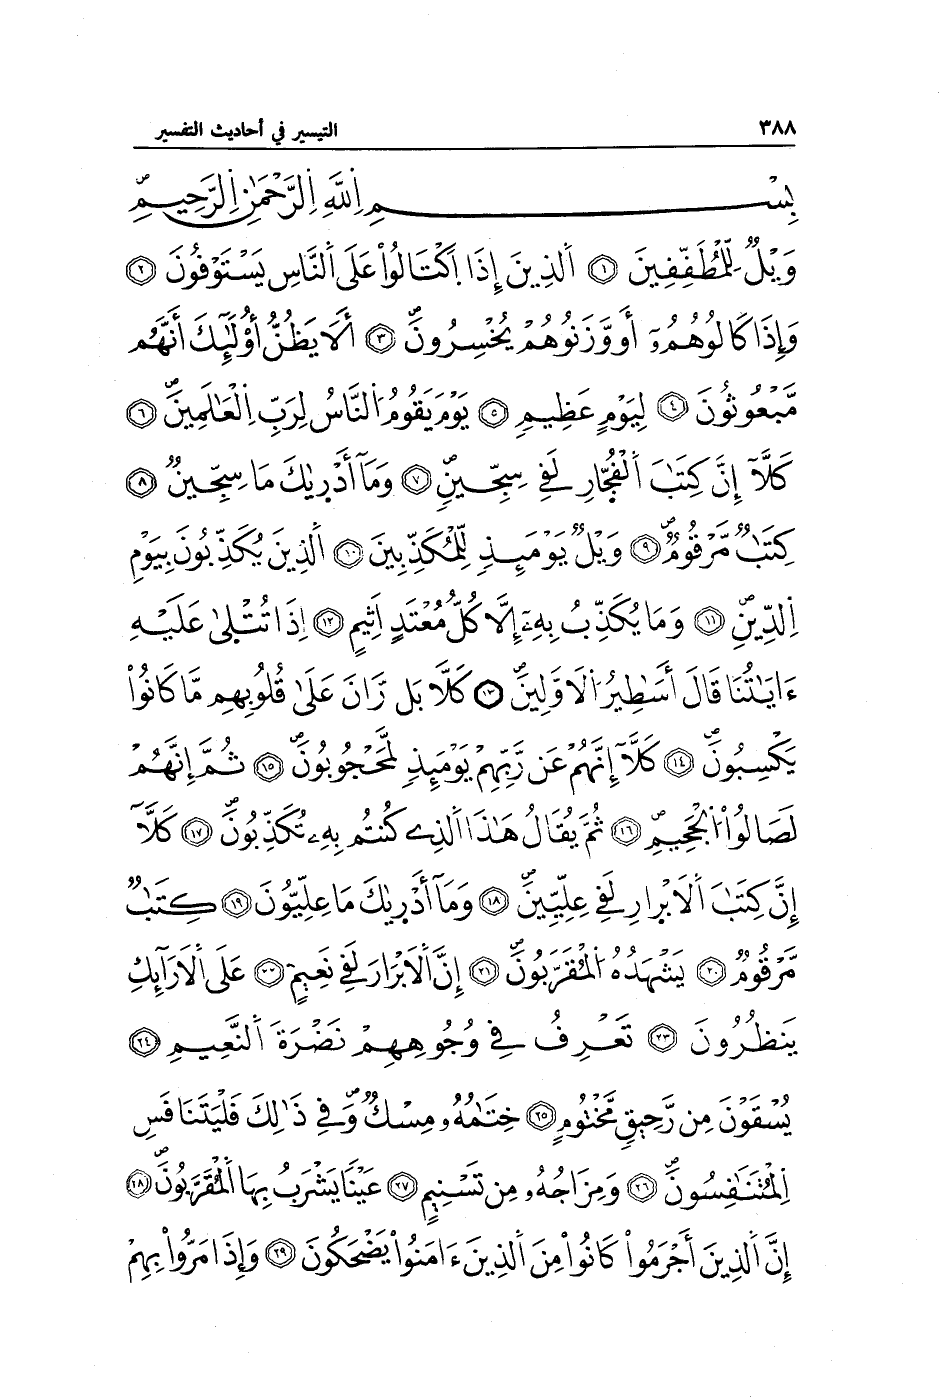 ٣٨٨ التيسير في أحاديث التفسير
بِسْمِ اِللَّهِ اِلرَّحْمَٰنِ اِلرَّحِيمِ
وَيْلٌ لِّلْمُطَفِّفِينَ ١ اَلذِينَ إِذَا اَكْتَالُواْ عَلَى اَلنَّاسِ يَسْتَوْفُونَ ٢
وَإِذَا كَالُوهُمُۥٓ أَو وَّزَنُوهُمْ يُخْسِرُونَ ٣ أَلَا يَظُنُّ أُوْلَٰٓئِكَ أَنَّهُم
مَّبْعُوثُونَ ٤ لِيَوْمٍ عَظِيمٍ ٥ يَوْمَ يَقُومُ اُلنَّاسُ لِرَبِّ اِلْعَٰلَمِينَ ٦
كَلَّآ إِنَّ كِتَٰبَ اَلْفُجّارِ لَفِي سِجِّينٍ ٧ وَمَآ أَدْرِيٰكَ مَا سِجِّينٌ ٨
كِتَٰبٌ مَّرْقُومٌ ٩ وَيْلٌ يَوْمَئِذٍ لِّلْمُكَذِّبِينَ ١٠ اَلذِينَ يُكَذِّبُونَ بِيَوْمِ
اِلدِّينِ ١١ وَمَا يُكَذِّبُ بِهِۦٓ إِلَّا كُلُّ مُعْتَدٍ اَثِيمٍ ١٢ إِذَا تُتْلِيٰ عَلَيْهِ
ءَايَٰتُنَا قَالَ أَسَٰطِيرُ اُلَاوَّلِينَ ١٣ كَلَّا بَل رَّانَ عَلَىٰ قُلُوبِهِم مَّا كَانُواْ
يَكْسِبُونَ ١٤ كَلَّآ إِنَّهُمْ عَن رَّبِّهِمْ يَوْمَئِذٍ لَّمَحْجُوبُونَ ١٥ ثُمَّ إِنَّهُمْ
لَصَالُواْ اُلْجَحِيمِ ١٦ ثُمَّ يُقَالُ هَٰذَا اَلذِي كُنتُم بِهِۦ تُكَذِّبُونَ ١٧ كَلَّآ
إِنَّ كِتَٰبَ اَلَابْرارِ لَفِي عِلِّيِّينَ ١٨ وَمَآ أَدْرِيٰكَ مَا عِلِّيُّونَ ١٩ كِتَٰبٌ
مَّرْقُومٌ ٢٠ يَشْهَدُهُ اُلْمُقَرَّبُونَ ٢١ إِنَّ اَلَابْرَارَ لَفِي نَعِيمٍ ٢٢ عَلَى اَلَارَآئِكِ
يَنظُرُونَ ٢٣ تَعْرِفُ فِي وُجُوهِهِمْ نَضْرَةَ اَلنَّعِيمِ ٢٤
يُسْقَوْنَ مِن رَّحِيقٍ مَّخْتُومٍ ٢٥ خِتَٰمُهُۥ مِسْكٌ وَفِي ذَٰلِكَ فَلْيَتَنَافَسِ
اِلْمُتَنَٰفِسُونَ ٢٦ وَمِزَاجُهُۥ مِن تَسْنِيمٍ ٢٧ عَيْناً يَشْرَبُ بِهَا اَلْمُقَرَّبُونَ ٢٨
إِنَّ اَلذِينَ أَجْرَمُواْ كَانُواْ مِنَ اَلذِينَ ءَامَنُواْ يَضْحَكُونَ ٢٩ وَإِذَا مَرُّواْ بِهِمْ